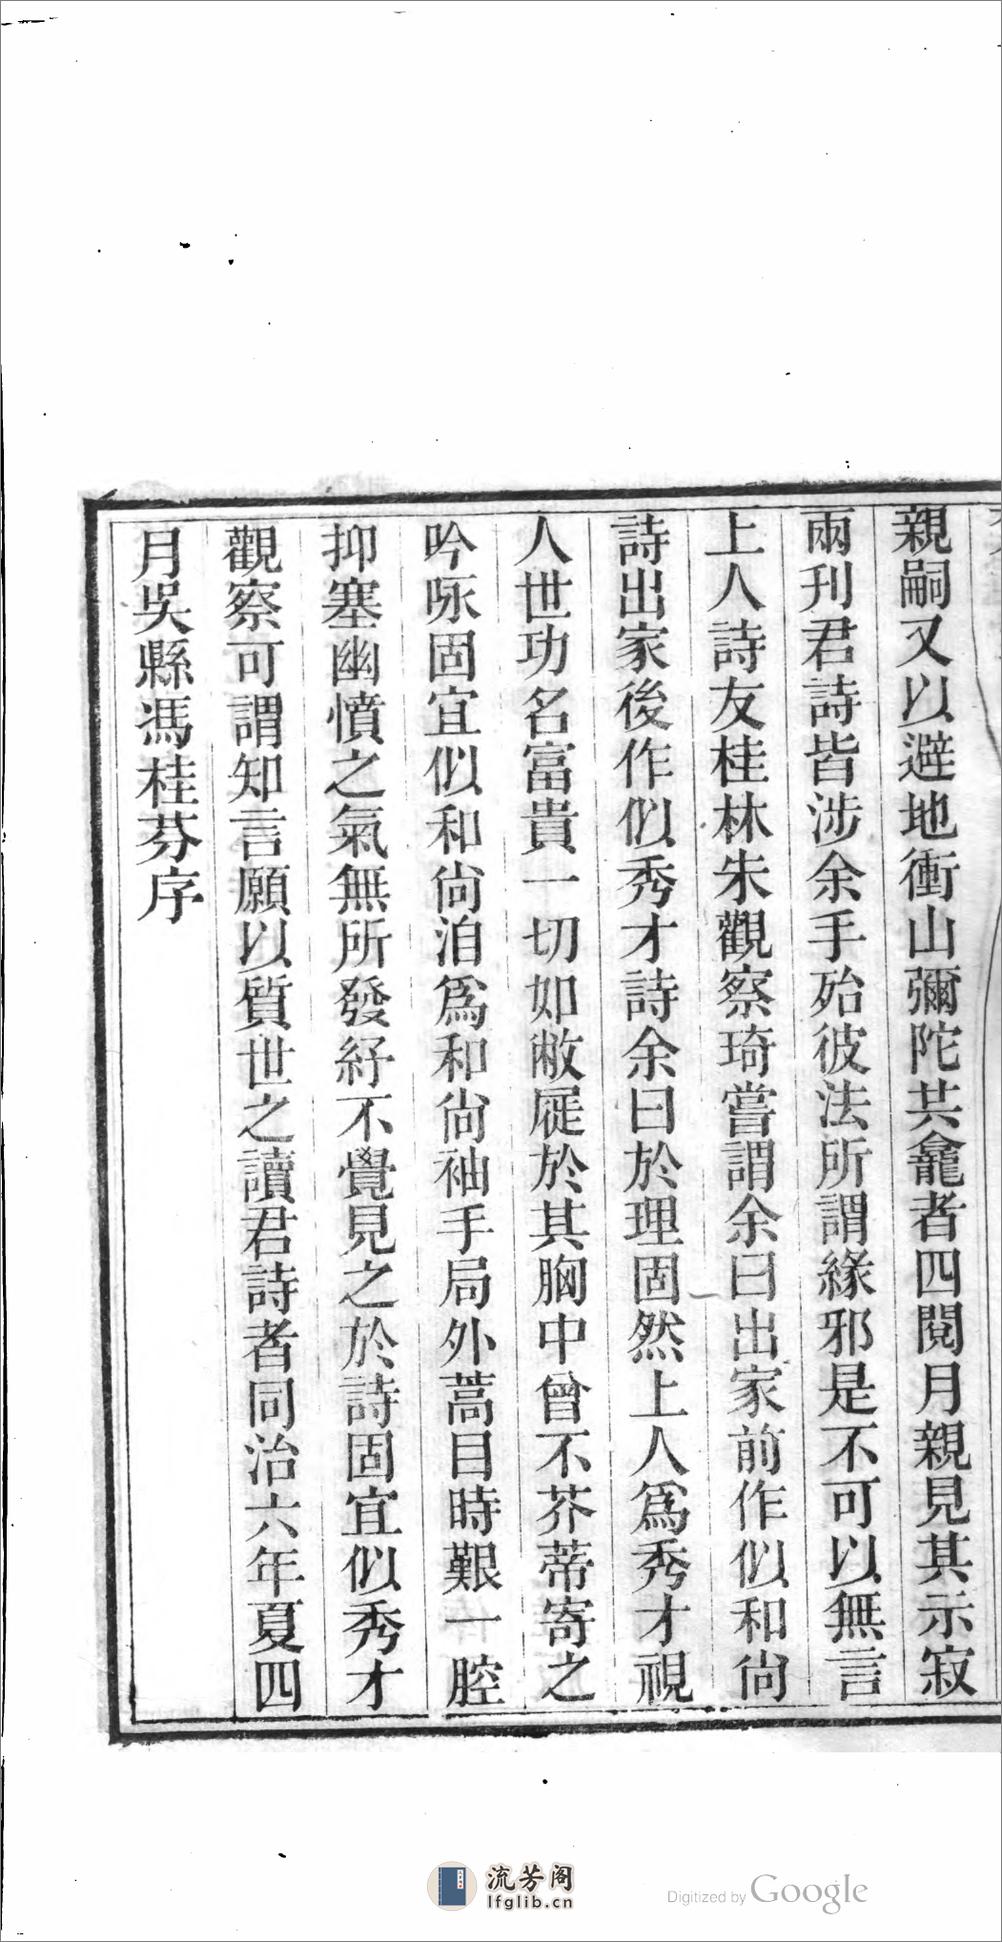 親嗣又以避地衝山彌陀共龕者四閱月親見其示寂
兩刊君詩皆涉余手殆彼法所謂緣邪是不可以無言
上人詩友桂林朱觀察琦嘗謂余曰出家前作似和尙
詩出家後作似秀才詩余曰於理固然上人爲秀才視
人世功名富貴一切如敝屣於其胸中曾不芥蒂寄之
吟咏固宜似和尙洎爲和尙袖手局外蒿目時艱一腔
抑塞幽憤之氣無所發紓不覺見之於詩固宜似秀才
觀察可謂知言願以質世之讀君詩者同治六年夏四
月吳縣馮桂芬序
流芳阁
lfglib.cn
Digitized by Google